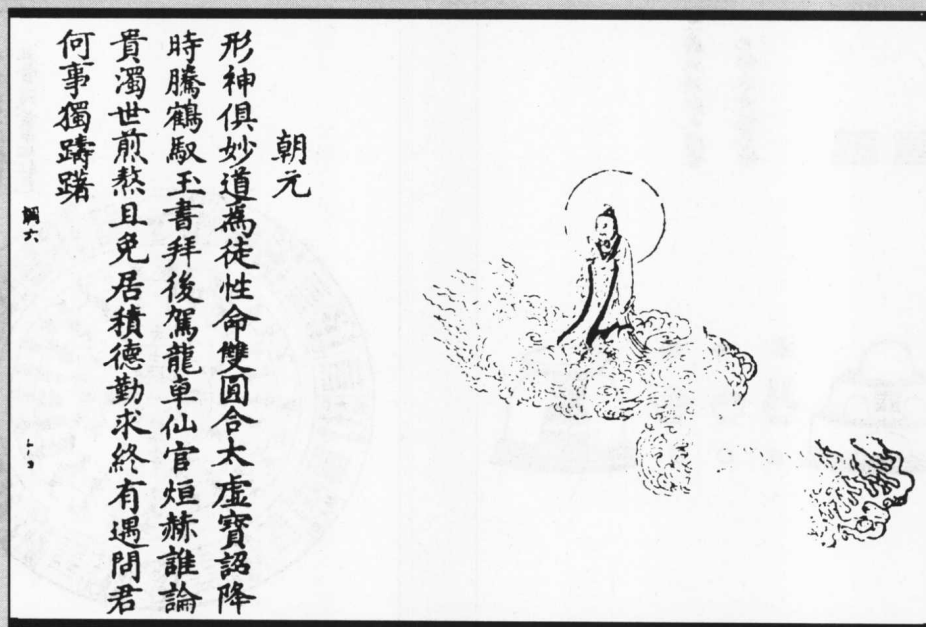 朝元
形神俱妙道爲徒性命雙圓合太虛寶詔降
時騰鶴馭玉書拜後駕龍車仙官烜赫誰論
貴濁世煎熬且免居積德勤求終有遇問君
何事獨躊躇